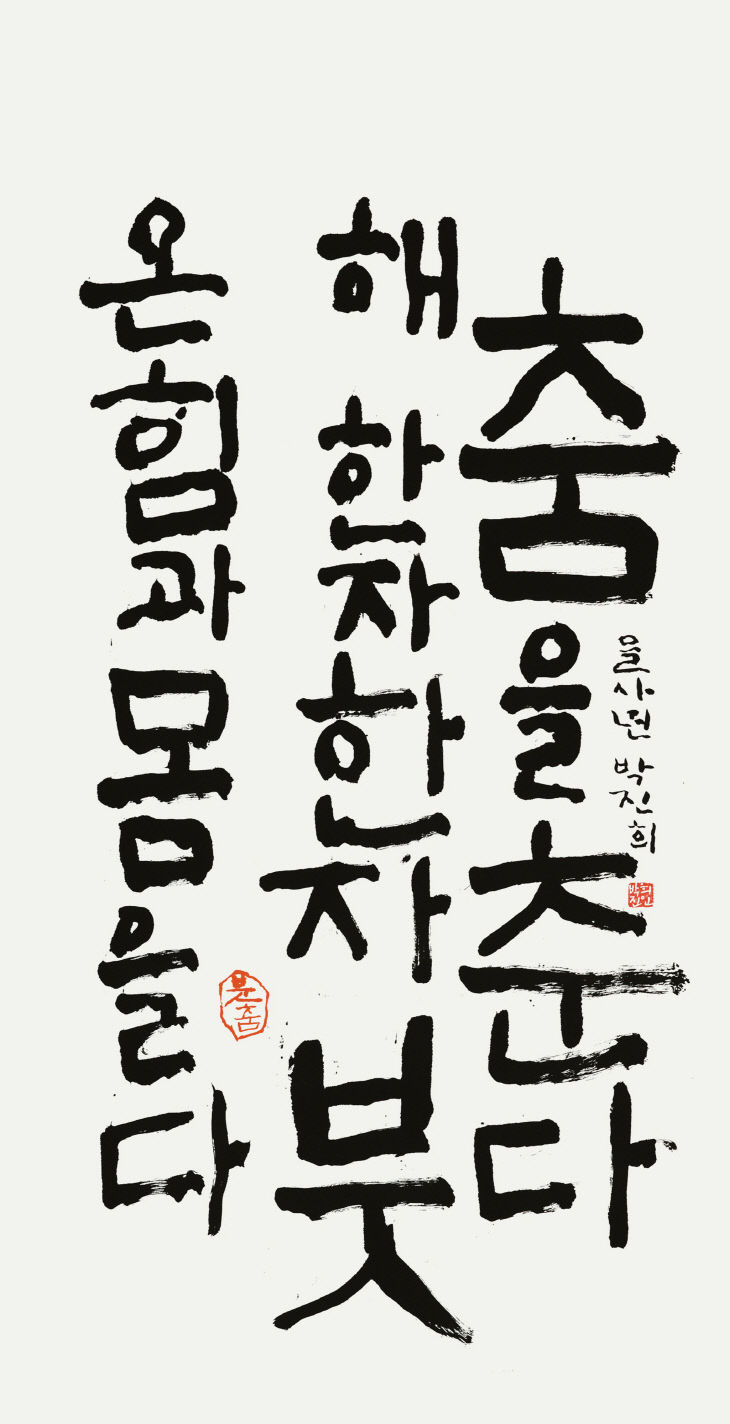 온힘과몸을다
해 한자한자 붓
춤을춘다
을사년 박진희